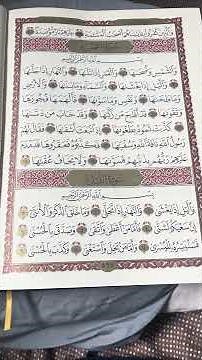 وَٱلَّذِينَ كَفَرُوا۟ بِـَٔايَـٰتِنَا هُمْ أَصْحَـٰبُ ٱلْمَشْـَٔمَةِ ۝ عَلَيْهِمْ نَارٌ مُّؤْصَدَةٌۢ ۝
سُورَةُ الشَّمْسِ
بِسْمِ ٱللَّهِ ٱلرَّحْمَـٰنِ ٱلرَّحِيمِ
وَٱلشَّمْسِ وَضُحَىٰهَا ۝ وَٱلْقَمَرِ إِذَا تَلَىٰهَا ۝ وَٱلنَّهَارِ إِذَا جَلَّىٰهَا ۝
وَٱلَّيْلِ إِذَا يَغْشَىٰهَا ۝ وَٱلسَّمَآءِ وَمَا بَنَىٰهَا ۝ وَٱلْأَرْضِ
وَمَا طَحَىٰهَا ۝ وَنَفْسٍ وَمَا سَوَّىٰهَا ۝ فَأَلْهَمَهَا فُجُورَهَا
وَتَقْوَىٰهَا ۝ قَدْ أَفْلَحَ مَن زَكَّىٰهَا ۝ وَقَدْ خَابَ مَن دَسَّىٰهَا ۝
كَذَّبَتْ ثَمُودُ بِطَغْوَىٰهَآ ۝ إِذِ ٱنۢبَعَثَ أَشْقَىٰهَا ۝ فَقَالَ لَهُمْ
رَسُولُ ٱللَّهِ نَاقَةَ ٱللَّهِ وَسُقْيَـٰهَا ۝ فَكَذَّبُوهُ فَعَقَرُوهَا فَدَمْدَمَ
عَلَيْهِمْ رَبُّهُم بِذَنۢبِهِمْ فَسَوَّىٰهَا ۝ وَلَا يَخَافُ عُقْبَـٰهَا ۝
سُورَةُ اللَّيْلِ
بِسْمِ ٱللَّهِ ٱلرَّحْمَـٰنِ ٱلرَّحِيمِ
وَٱلَّيْلِ إِذَا يَغْشَىٰ ۝ وَٱلنَّهَارِ إِذَا تَجَلَّىٰ ۝ وَمَا خَلَقَ ٱلذَّكَرَ وَٱلْأُنثَىٰٓ ۝
إِنَّ سَعْيَكُمْ لَشَتَّىٰ ۝ فَأَمَّا مَنْ أَعْطَىٰ وَٱتَّقَىٰ ۝ وَصَدَّقَ بِٱلْحُسْنَىٰ ۝
فَسَنُيَسِّرُهُۥ لِلْيُسْرَىٰ ۝ وَأَمَّا مَنۢ بَخِلَ وَٱسْتَغْنَىٰ ۝ وَكَذَّبَ بِٱلْحُسْنَىٰ ۝